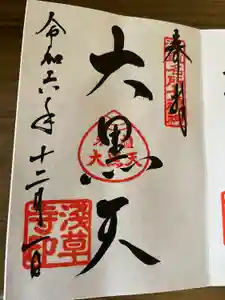 奉拝
大黒天
令和六年十二月一日
浅草寺印